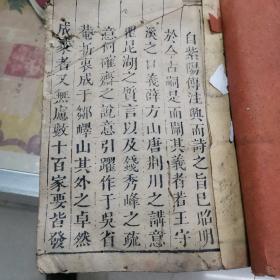 自紫陽傳注興而詩之旨已昭明
於今古嗣是而闡其義者若王守
溪之口義薛方山唐荆川之講意
瞿昆湖之質言以及錢秀峰之疏
意何確齋之說意引躍作于吳省
菴折衷成于鄒嶧山其外之卓然
成家者又無慮數十百家要皆發